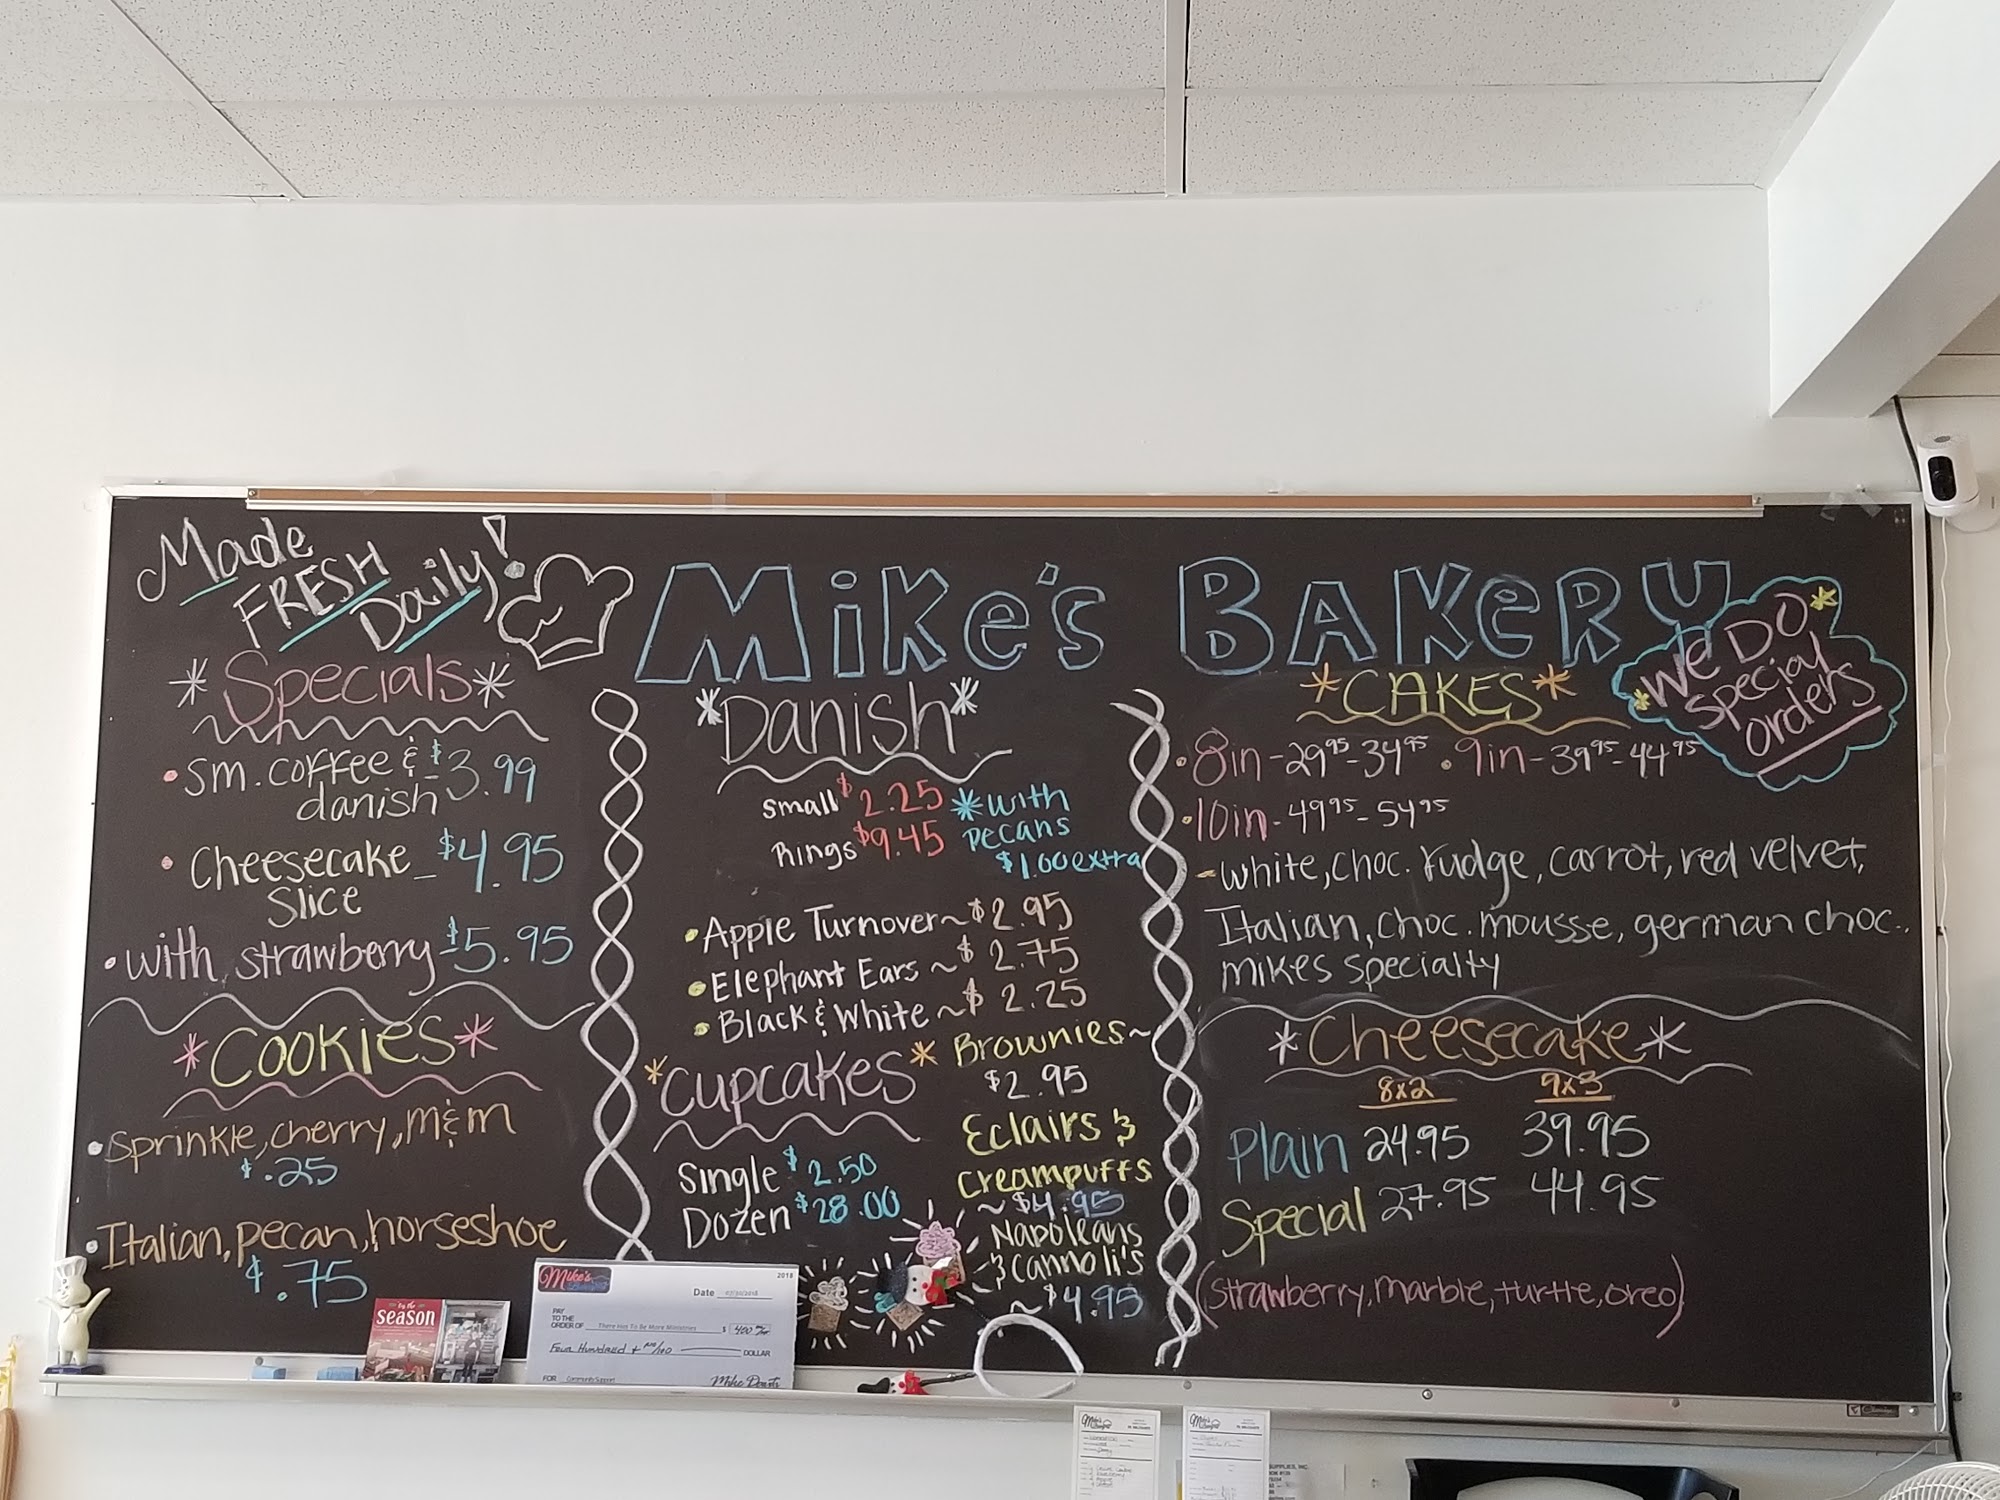 Made
FRESH
Daily!
MIKE'S BAKERY
*WE DO*
Special
orders
*Specials*
• Sm. coffee & $3.99
danish
• Cheesecake $4.95
Slice
• with strawberry $5.95
*COOKIES*
• Sprinkle, cherry, M&M
$.25
• Italian, pecan, horseshoe
$.75
*DANISH*
small $2.25 *with
Rings $9.45 pecans
$1.00 extra
• Apple Turnover ~ $2.95
• Elephant Ears ~ $2.75
• Black & White ~ $2.25
*CUPCAKES*
Single $2.50
Dozen $28.00
BROWNIES ~
$2.95
Eclairs &
creampuffs
~ $4.95
Napoleans
& Cannoli's
~ $4.95
*CAKES*
• 8in - 29.95 - 34.95 • 9in - 39.95 - 44.95
• 10in - 49.95 - 54.95
- White, choc. fudge, carrot, red velvet,
Italian, choc. mousse, german choc.,
mikes specialty
*Cheesecake*
8x2 9x3
Plain 24.95 39.95
Special 27.95 44.95
(Strawberry, marble, turtle, oreo)
season
Mike's
2018
Date
PAY
TO THE
ORDER OF There Has To Be More Ministries $ 400
Four Hundred + 00/100 DOLLAR
FOR Community Support